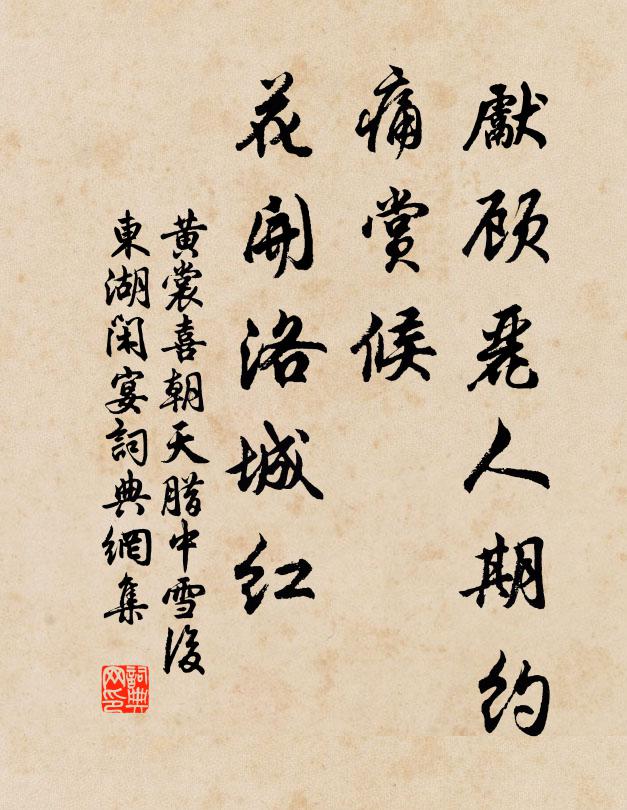 獻顾麗人期约
痛賞候
花開洛城红
黄裳喜朝天腊中雪後
東湖闲宴詞典網集
詞典
网印